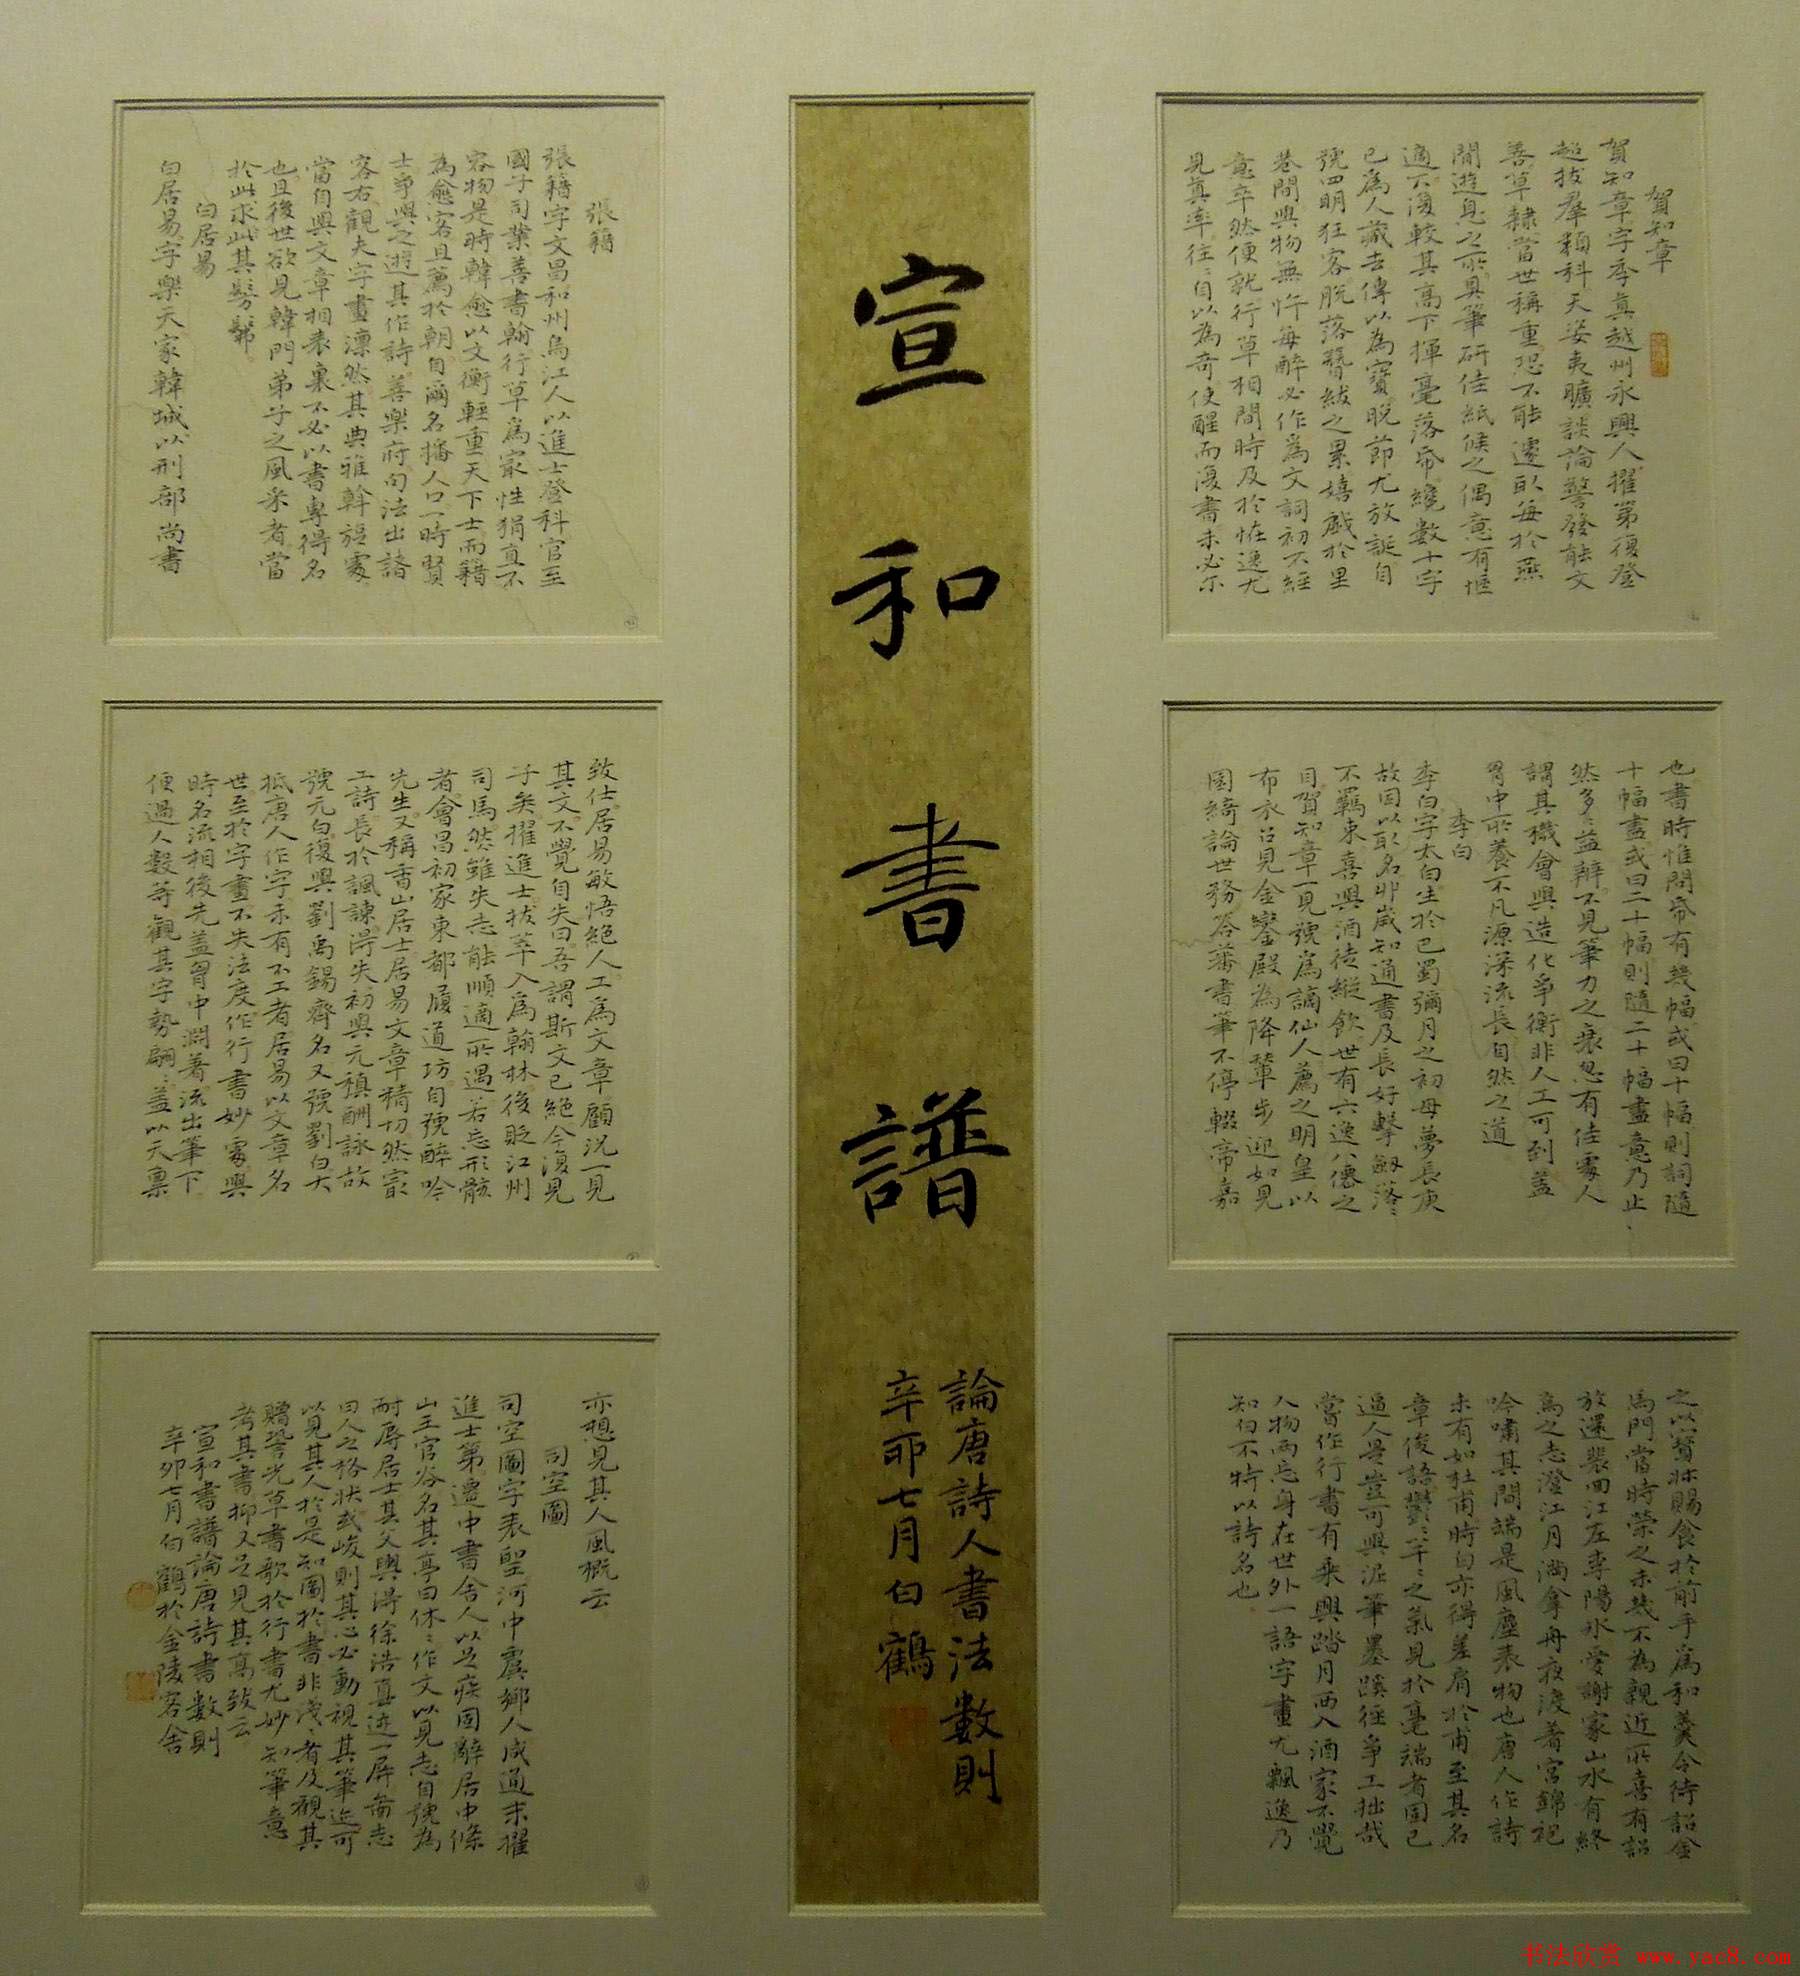 賀知章
賀知章字季真越州永興人擢第復登
超拔羣類科天姿夷曠談論警發能文
善草隸當世稱重恐不能遽取每於燕
閒遊息之所具筆研佳紙候之偶意有愜
適不復較其高下揮毫落帋纔數十字
已為人藏去傳以為寶晚節尤放誕自
號四明狂客脫落簪紱之累嬉戲於里
巷間與物無忤每醉必作為文詞初不經
意卒然便就行草相間時及於恠逸尤
見真率往往自以為奇使醒而復書未必尔
也書時惟問帋有幾幅或曰十幅則詞隨
十幅盡或曰二十幅則隨二十幅盡意乃止
然多多益辦不見筆力之衰忽有佳處人
謂其機會與造化爭衡非人工可到盖
胷中所養不凡源深流長自然之道
李白
李白字太白生於巴蜀彌月之初母夢長庚
故因以取名丱歲知通書及長好擊劒落落
不羈束喜與酒徒縱飲世有六逸八僊之
目賀知章一見號為謫仙人薦之明皇以
布衣召見金鑾殿為降輦步迎如見
園綺論世務答蕃書筆不停輟帝嘉
之以寶牀賜食於前手為和羹令待詔金
馬門當時榮之未幾不為親近所喜有詔
放還裴回江左李陽氷愛謝家山水有終
焉之志澄江月滿拏舟夜渡著宮錦袍
吟嘯其間端是風塵表物也唐人作詩
未有如杜甫時白亦得差肩於甫至其名
章俊語鬱鬱芊芊之氣見於毫端者固已
逼人是豈可與泥筆墨蹊徑爭工拙哉
嘗作行書有乘興踏月西入酒家不覺
人物兩忘身在世外一語字畫尤飄逸乃
知白不特以詩名也
宣和書譜
論唐詩人書法數則
辛卯七月白鶴
張籍
張籍字文昌和州烏江人以進士登科官至
國子司業善書翰行草為最性狷直不
容物是時韓愈以文衡輕重天下士而籍
為愈客且薦於朝自爾名播人口一時賢
士爭與之遊其作詩善樂府句法出諸
客右觀夫字畫凛然其典雅斡旋處
當自與文章相表裏不必以書專得名
也且後世欲見韓門弟子之風采者當
於此求此其髣髴
白居易
白居易字樂天家韓城以刑部尚書
致仕居易敏悟絕人工為文章顧況一見
其文不覺自失曰吾謂斯文已絕今復見
子矣擢進士拔萃入為翰林後貶江州
司馬然雖失志能順適所遇若忘形骸
者會昌初家東都履道坊自號醉吟
先生又稱香山居士居易文章精切然最
工詩長於諷諫得失初與元稹酬詠故
號元白復與劉禹錫齊名又號劉白大
抵唐人作字未有不工者居易以文章名
世至於字畫不失法度作行書妙處與
時名流相後先盖胷中淵著流出筆下
便過人數等觀其字勢翩翩盖以天禀
亦想見其人風概云
司空圖
司空圖字表聖河中虞鄉人咸通末擢
進士第遷中書舍人以足疾固辭居中條
山王官谷名其亭曰休休作文以見志自號為
耐辱居士其父輿得徐浩真迹一屏嵛志
曰人之格狀或峻則其心必動視其筆迹可
以見其人於是知圖於書非淺淺者及觀其
贈𧦬光草書歌於行書尤妙知筆意
考其書抑又足見其高致云
宣和書譜論唐詩書數則
辛卯七月白鶴於金陵客舍
书法欣赏 www.yac8.com